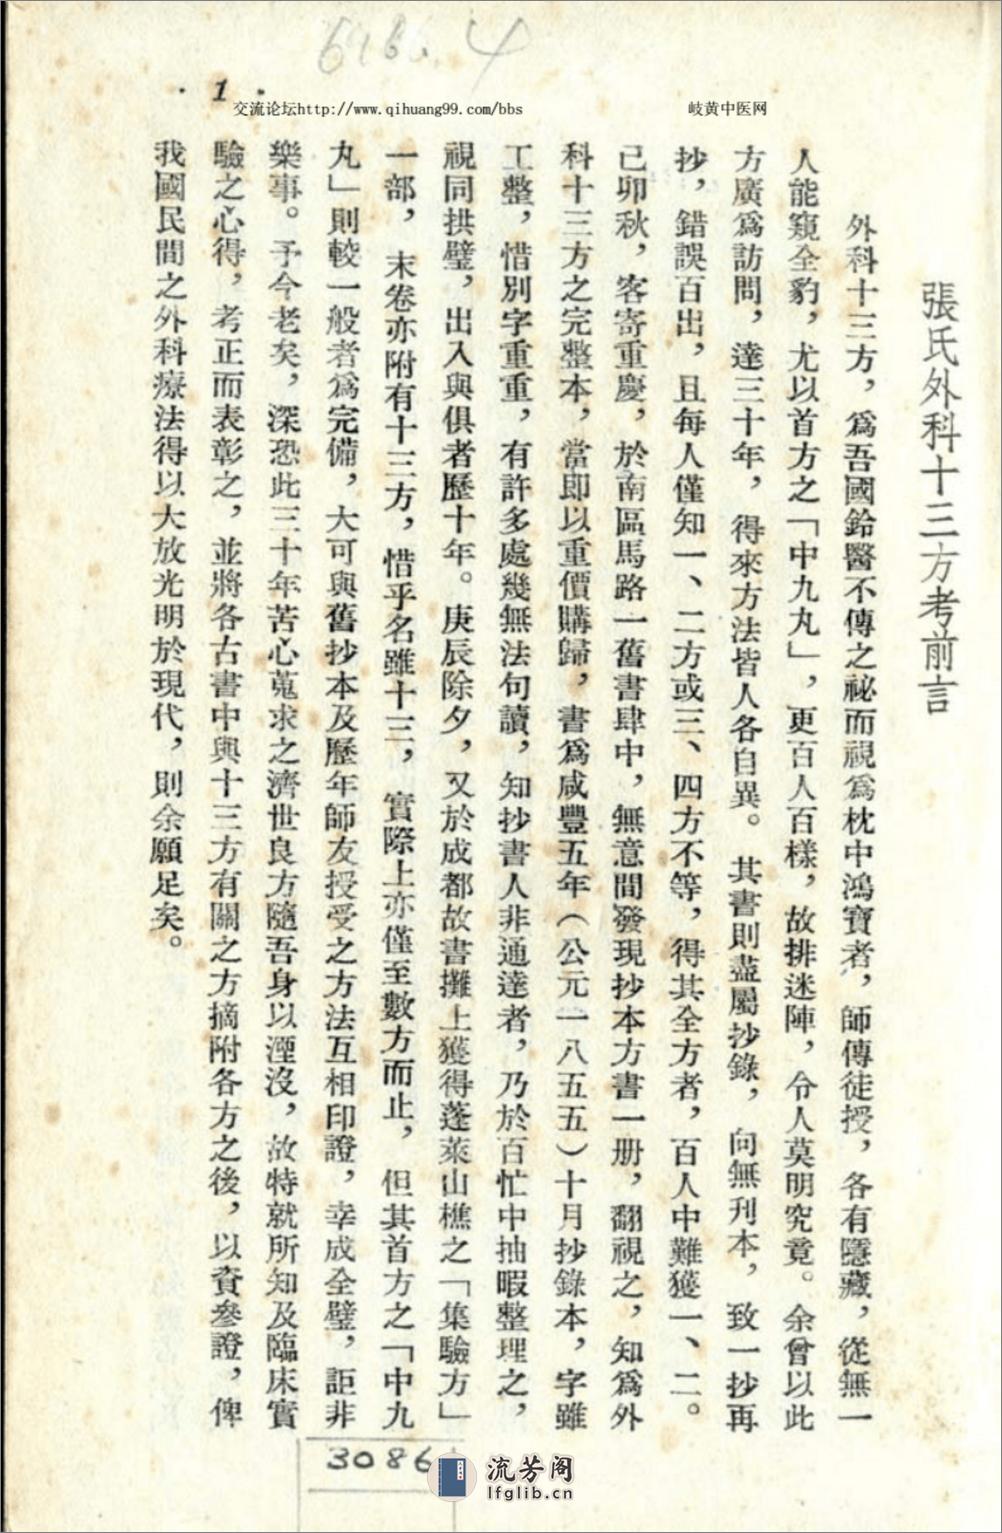 6186.4
·1·
交流论坛http://www.qihuang99.com/bbs
岐黄中医网
張氏外科十三方考前言
外科十三方，爲吾國鈴醫不傳之祕而視爲枕中鴻寶者，師傳徒授，各有隱藏，從無一
人能窺全豹，尤以首方之「中九丸」，更百人百樣，故排迷陣，令人莫明究竟。余曾以此
方廣爲訪問，達三十年，得來方法皆人各自異。其書則盡屬抄錄，向無刊本，致一抄再
抄，錯誤百出，且每人僅知一、二方或三、四方不等，得其全方者，百人中難獲一、二。
己卯秋，客寄重慶，於南區馬路一舊書肆中，無意間發現抄本方書一册，翻視之，知爲外
科十三方之完整本，當即以重價購歸，書爲咸豐五年（公元一八五五）十月抄錄本，字雖
工整，惜別字重重，有許多處幾無法句讀，知抄書人非通達者，乃於百忙中抽暇整理之，
視同拱璧，出入與俱者歷十年。庚辰除夕，又於成都故書攤上獲得蓬萊山樵之「集驗方」
一部，末卷亦附有十三方，惜乎名雖十三，實際上亦僅至數方而止，但其首方之「中九
丸」則較一般者爲完備，大可與舊抄本及歷年師友授受之方法互相印證，幸成全璧，詎非
樂事。予今老矣，深恐此三十年苦心蒐求之濟世良方隨吾身以湮沒，故特就所知及臨床實
驗之心得，考正而表彰之，並將各古書中與十三方有關之方摘附各方之後，以資參證，俾
我國民間之外科療法得以大放光明於現代，則余願足矣。
3086
流芳阁
lfglib.cn